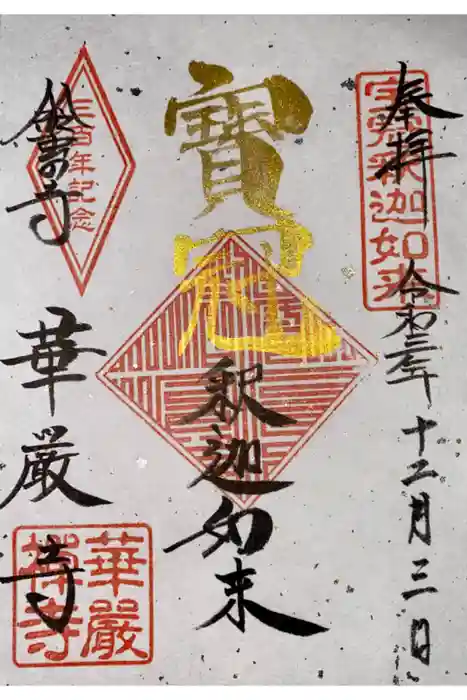 奉拝
令和三年 十二月 三日
宝冠釈迦如来
寶冠
釈迦如来
三百年記念
華嚴寺
華嚴
禅寺